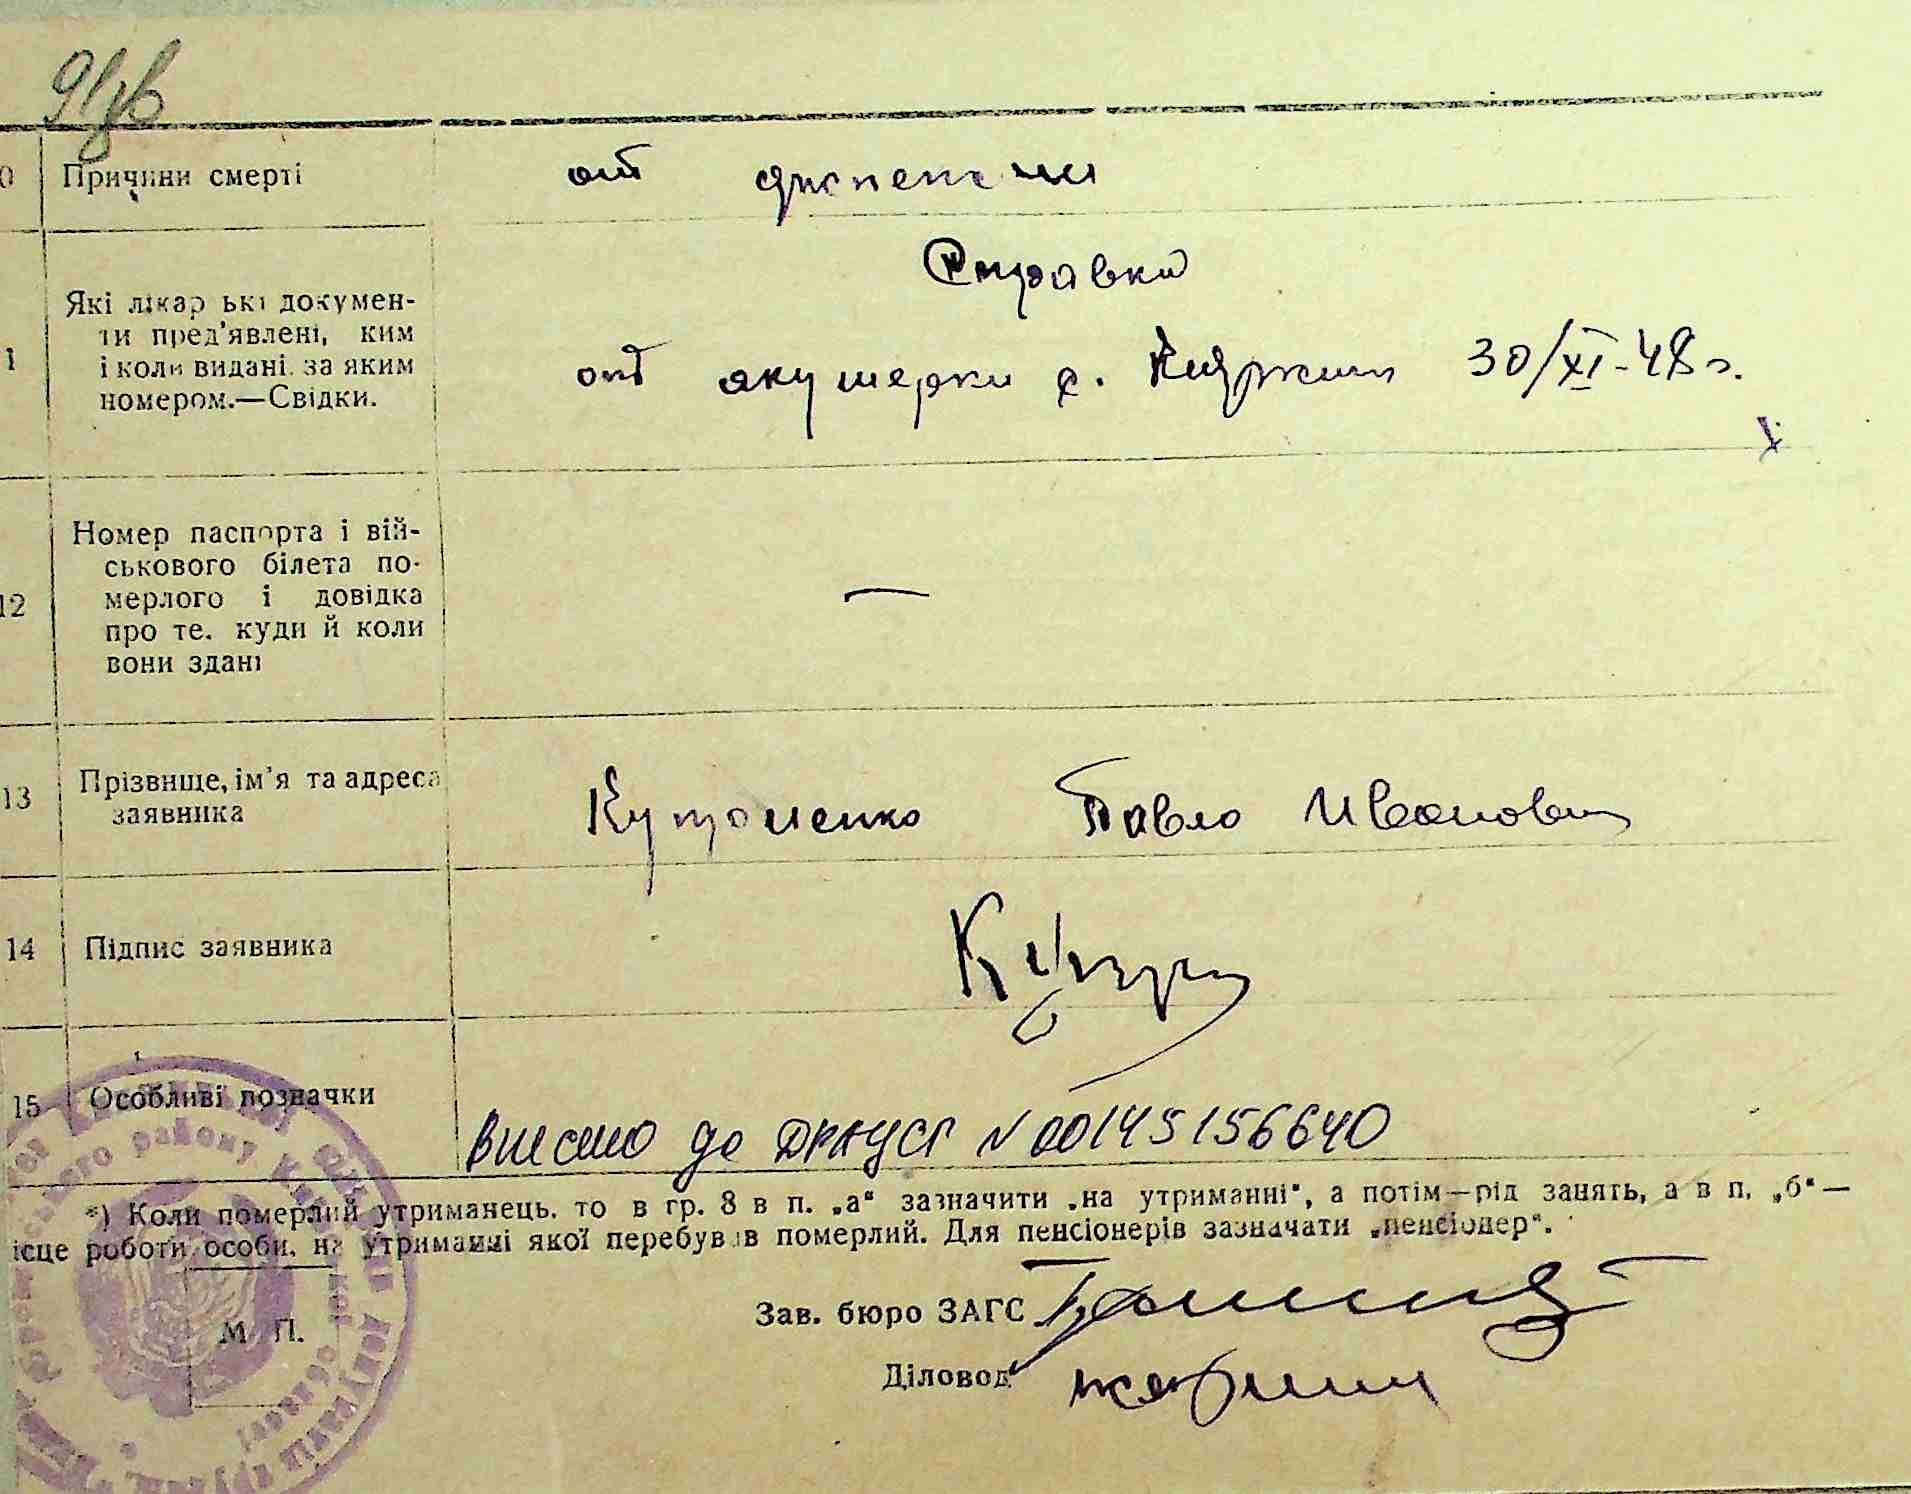 91зв
0 Причини смерті
от диспепсии
Справка
1 Які лікарські докумен-
ти пред'явлені, ким
і коли видані, за яким
номером.—Свідки.
от акушерки с. 30/XI-48 г.
12 Номер паспорта і вій-
ськового білета по-
мерлого і довідка
про те, куди й коли
вони здані
—
13 Прізвище, ім'я та адреса
заявника
Павло Иванович
14 Підпис заявника
15 Особливі позначки
Внесено до ДРАЦСГ N 00145156640
*) Коли померлий утриманець, то в гр. 8 в п. „а“ зазначити „на утриманні“, а потім—рід занять, а в п. „б“—
ісце роботи особи, на утриманні якої перебував померлий. Для пенсіонерів зазначати „пенсіонер“.
М. П.
Зав. бюро ЗАГС
Діловод
району